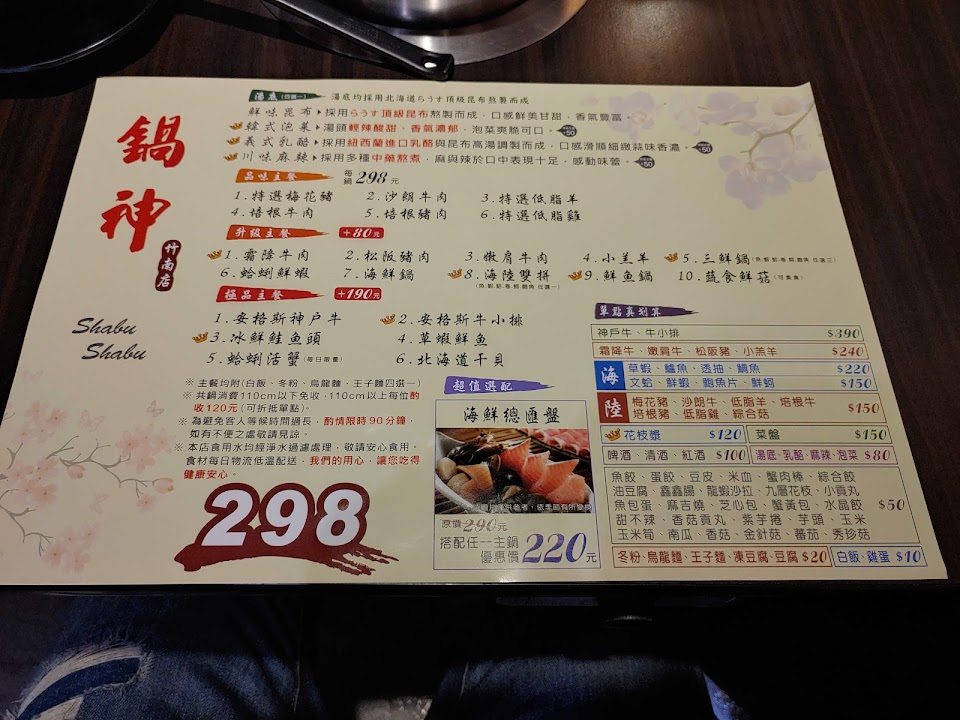 鍋神
竹南店
Shabu
Shabu
湯底(四選一) 湯底均採用北海道らうす頂級昆布熬製而成
鮮味昆布▸採用らうす頂級昆布熬製而成，口感鮮美甘甜、香氣豐富。
韓式泡菜▸湯頭輕辣酸甜、香氣濃郁，泡菜爽脆可口。+50
義式乳酪▸採用紐西蘭進口乳酪與昆布高湯調製而成，口感滑順細緻蒜味香濃。+50
川味麻辣▸採用多種中藥熬煮，麻與辣於口中表現十足，感動味蕾。+50
品味主餐 每鍋298元
1.特選梅花豬 2.沙朗牛肉 3.特選低脂羊
4.培根牛肉 5.培根豬肉 6.特選低脂雞
升級主餐 +80元
1.霜降牛肉 2.松阪豬肉 3.嫩肩牛肉 4.小羔羊 5.三鮮鍋
6.蛤蜊鮮蝦 7.海鮮鍋 8.海陸雙拼 9.鮮魚鍋 10.蔬食鮮菇(可素食)
極品主餐 +190元
1.安格斯神戶牛 2.安格斯牛小排
3.冰鮮鮭魚頭 4.草蝦鮮魚
5.蛤蜊活蟹(每日限量) 6.北海道干貝
※主餐均附(白飯、冬粉、烏龍麵、王子麵四選一)
※共鍋消費110cm以下免收，110cm以上每位酌
收120元(可折抵單點)。
※為避免客人等候時間過長，酌情限時90分鐘，
如有不便之處敬請見諒。
※本店食用水均經淨水過濾處理，敬請安心食用，
食材每日物流低溫配送，我們的用心，讓您吃得
健康安心。
298
超值選配
海鮮總匯盤
原價290元
搭配任一主鍋
優惠價220元
單點真划算
神戶牛、牛小排 $390
霜降牛、嫩肩牛、松阪豬、小羔羊 $240
海
草蝦、鱸魚、透抽、鯛魚 $220
文蛤、鮮蝦、鮑魚片、鮮蚵 $150
陸
梅花豬、沙朗牛、低脂羊、培根牛
培根豬、低脂雞、綜合菇 $150
花枝漿 $120 菜盤 $150
啤酒、清酒、紅酒 $100 湯底、乳酪、麻辣、泡菜 $80
魚餃、蛋餃、豆皮、米血、蟹肉棒、綜合餃
油豆腐、鑫鑫腸、龍蝦沙拉、九層花枝、小貢丸
魚包蛋、麻吉燒、芝心包、蟹黃包、水晶餃 $50
甜不辣、香菇貢丸、紫芋捲、芋頭、玉米
玉米筍、南瓜、香菇、金針菇、蕃茄、秀珍菇
冬粉、烏龍麵、王子麵、凍豆腐、豆腐 $20 白飯、雞蛋 $10